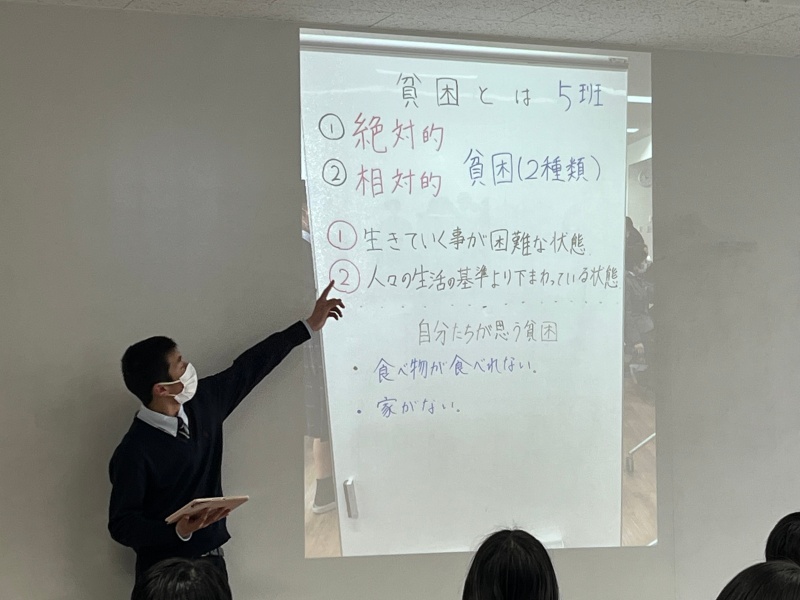 貧困とは 5班
① 絶対的
② 相対的 貧困(2種類)
① 生きていく事が困難な状態
② 人々の生活の基準より下まわっている状態
自分たちが思う貧困
・食べ物が食べれない。
・家がない。